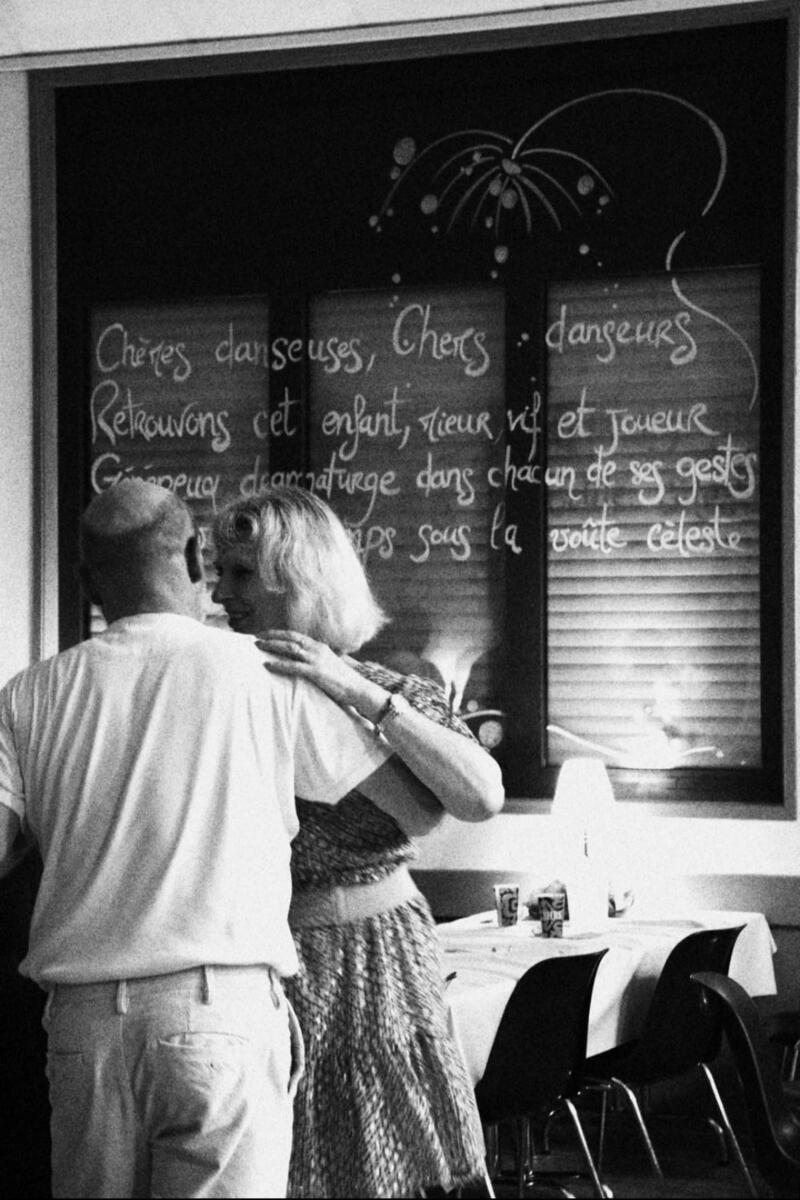 Chères danseuses, Chers danseurs
Retrouvons cet enfant, rieur, vif et joueur
dramaturge dans chacun de ses gestes
sous la voûte céleste